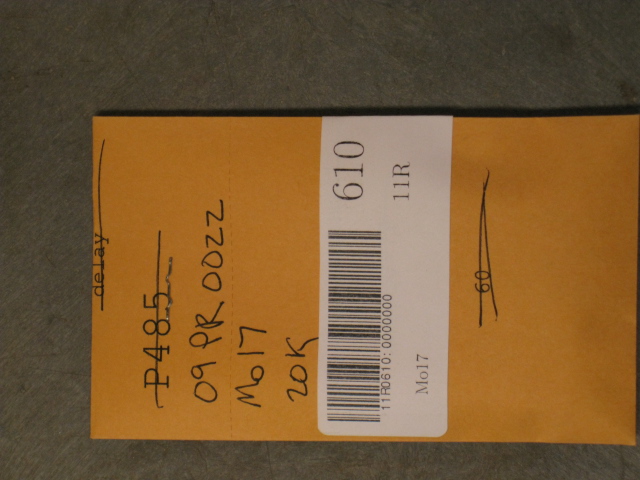 delay
P485
09PR0022
Mo17
20K
610
11R
11R0610:0000000
Mo17
60